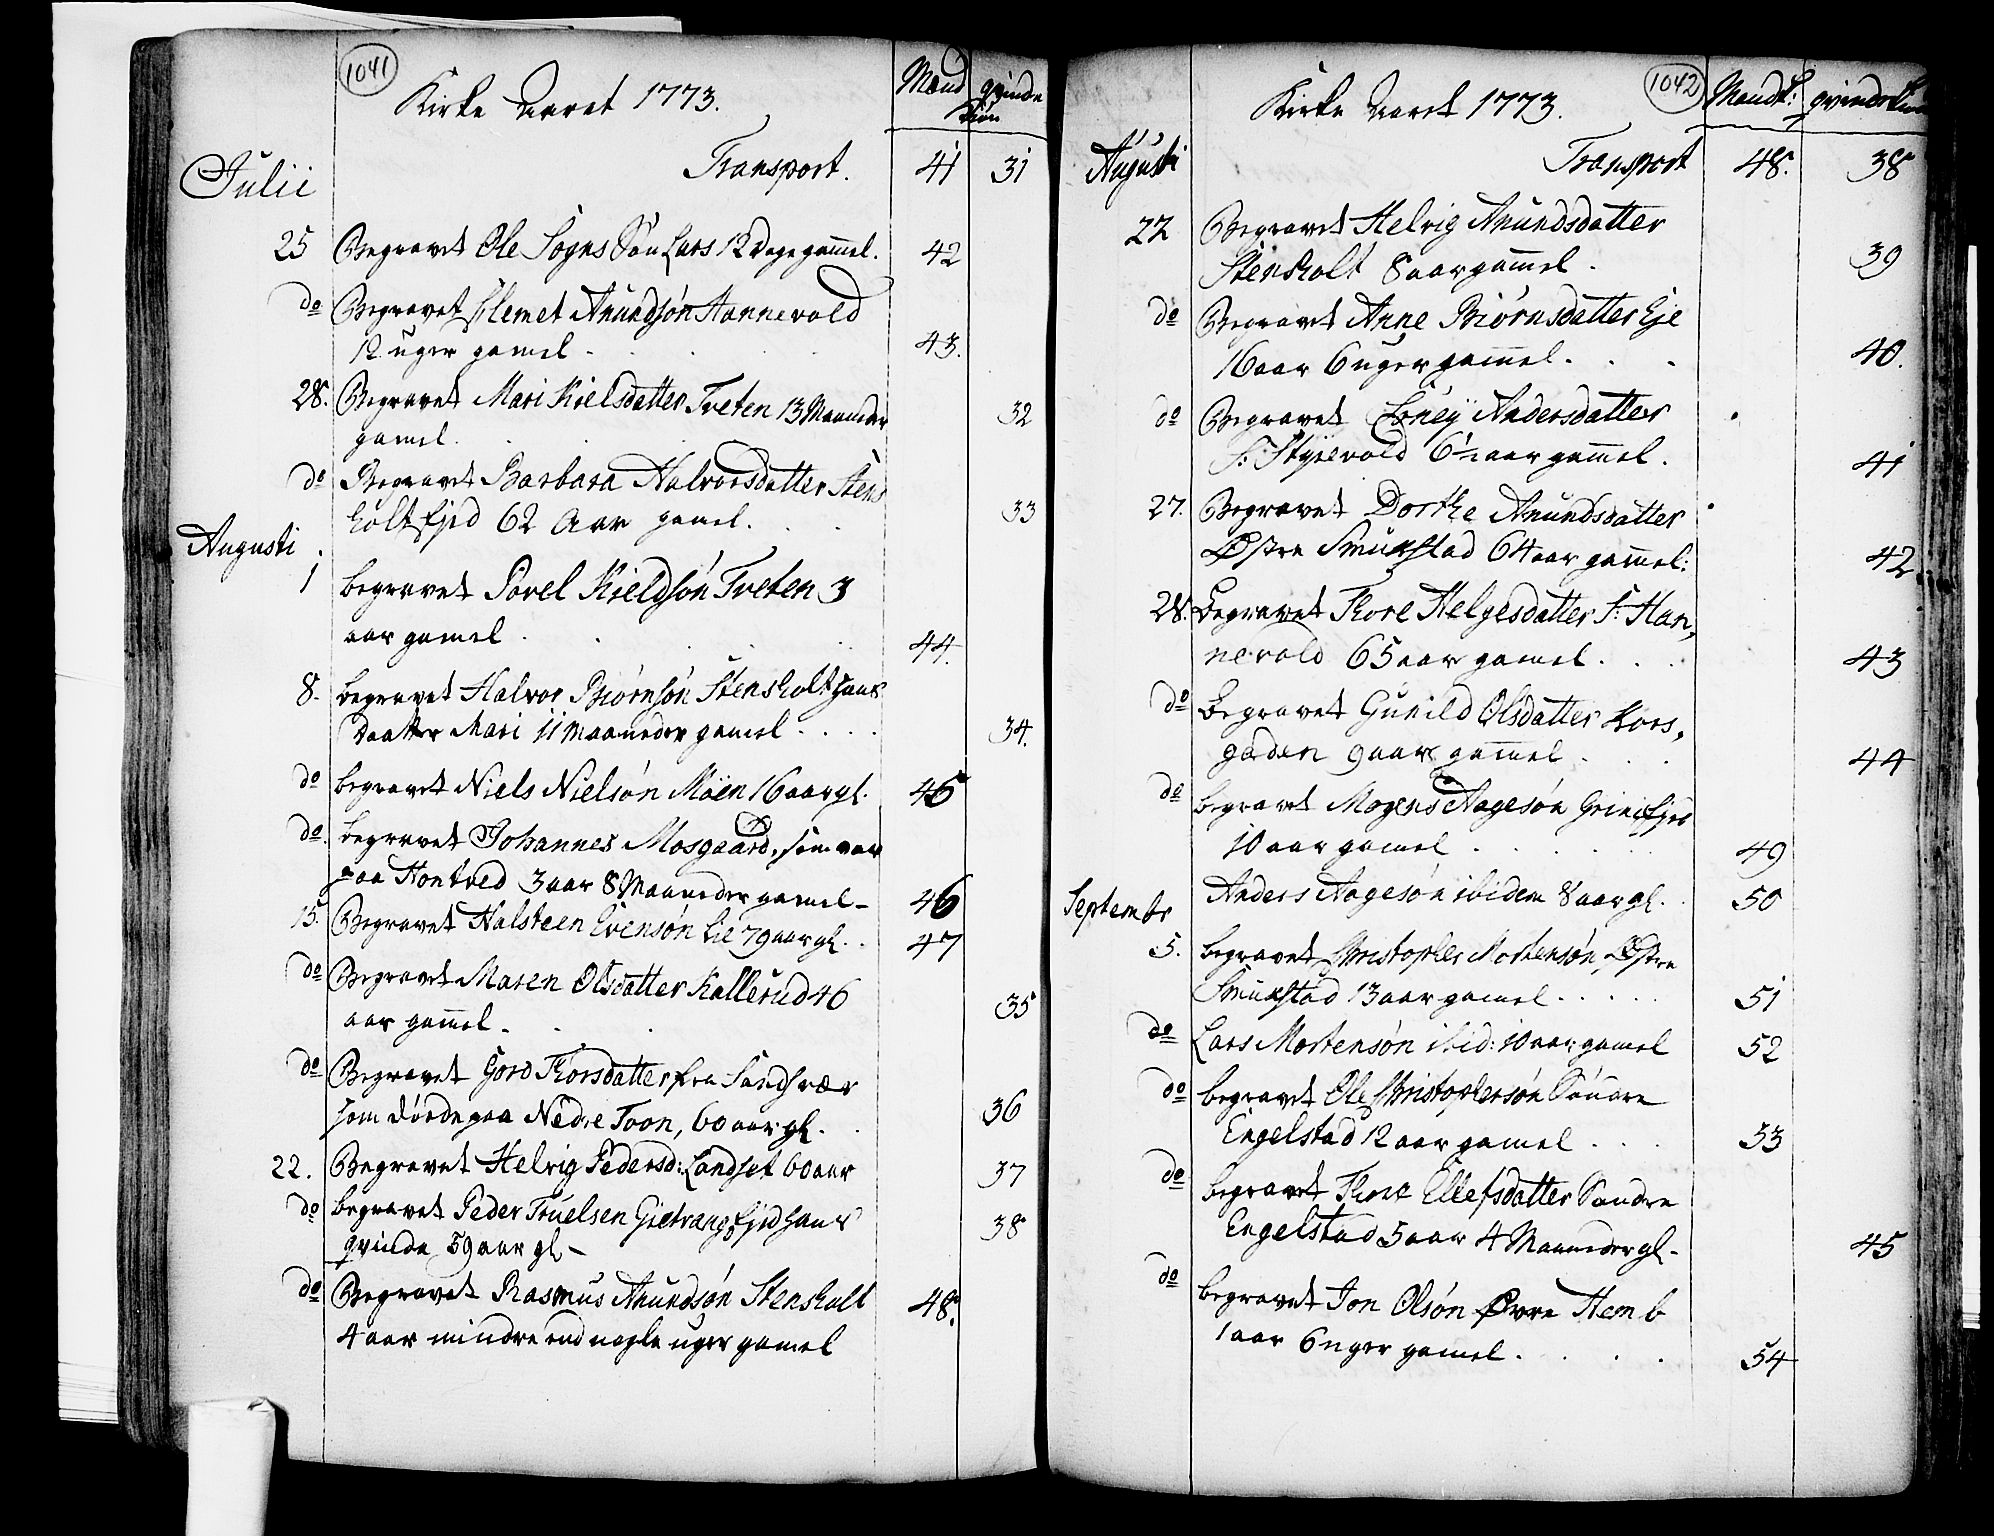 1041
Kirke Aaret 1773.
Mænd qvinde
Kiøn
Julii
Transport. 41 31
25 Begravet Ole Sogns Søn Lars 12 Dage gam̄el. 42
do Begravet Clemet Anundsøn Hannevold
12 uger gamel 43.
28. Begravet Mari Kielsdatter Tveten 13 Maaneder
gamel. 32
do Begravet Barbara Halvorsdatter Stens
holtfjed 62 Aar gamel. 33
Augusti
1 begravet Povel Kieldsøn Tveten 3
aar gamel 44.
8. begravet Halvor Biørnsøn Stensholt hans
Daatter Mari 11 Maaneder gamel 34.
do begravet Niels Nielsøn Moen 16 aar gl. 45
do. begravet Johannes Mosgaard, som var
paa Hontved 3 aar 8 Maaneder gamel 46
15. Begravet Halsteen Evensøn Lie 79 aar gl. 47
do Begravet Maren Olsdatter Kallerud 46
aar gam̄el. 35
do Begravet Gord Thorsdatter fra Sandsvær
som døde paa Nedre Toon, 60 aar gl. 36
22. Begravet Helvig Pedersd: Landset 60 aar 37
do begravet Peder Truelsen fjed hans
qvinde 59 aar gl 38
do Begravet Rasmus Anundsøn Stensholt 48.
4 aar mindre end nogle uger gamel
1042
Kirke Aaret 1773.
Mandk: qvindekiøn
Augusti
Transport 48. 38
22 Begravet Helvig Anundsdatter
Stensholt 8 aar gam̄el. 39
do Begravet Anne Biørnsdatter Eje
16 aar 6 uger gam̄el. 40.
do Begravet Andersdatter
S: Styrevold 6½ aar gam̄el. 41
27. Begravet Dorthe Anundsdatter
Østre Smukstad 64 aar gam̄el: 42
28. Begravet Thore Helgesdatter S: Han,
nevold 65 aar gamel. 43
do Begravet Gunild Olsdatter Kors,
gaden 9 aar gam̄el 44
do begravet Mogens Aagesøn Grinifjed
10 aar gamel 49
Anders Aagesøn ibidem 8 aar gl. 50
Septembr
5. begravet Christopher Mortensøn Østre
Smukstad 13 aar gamel. 51
do Lars Mortensøn ibid: 10 aar gamel 52
do begravet Ole Christophersøn Søndre
Engelstad 12 aar gamel 53
do begravet Thore Ellefsdatter Søndre
Engelstad 5 aar 4 Maaneder gl. 45
do begravet Jon Olsøn Øvre Hem b
1 aar 6 uger gamel. 54